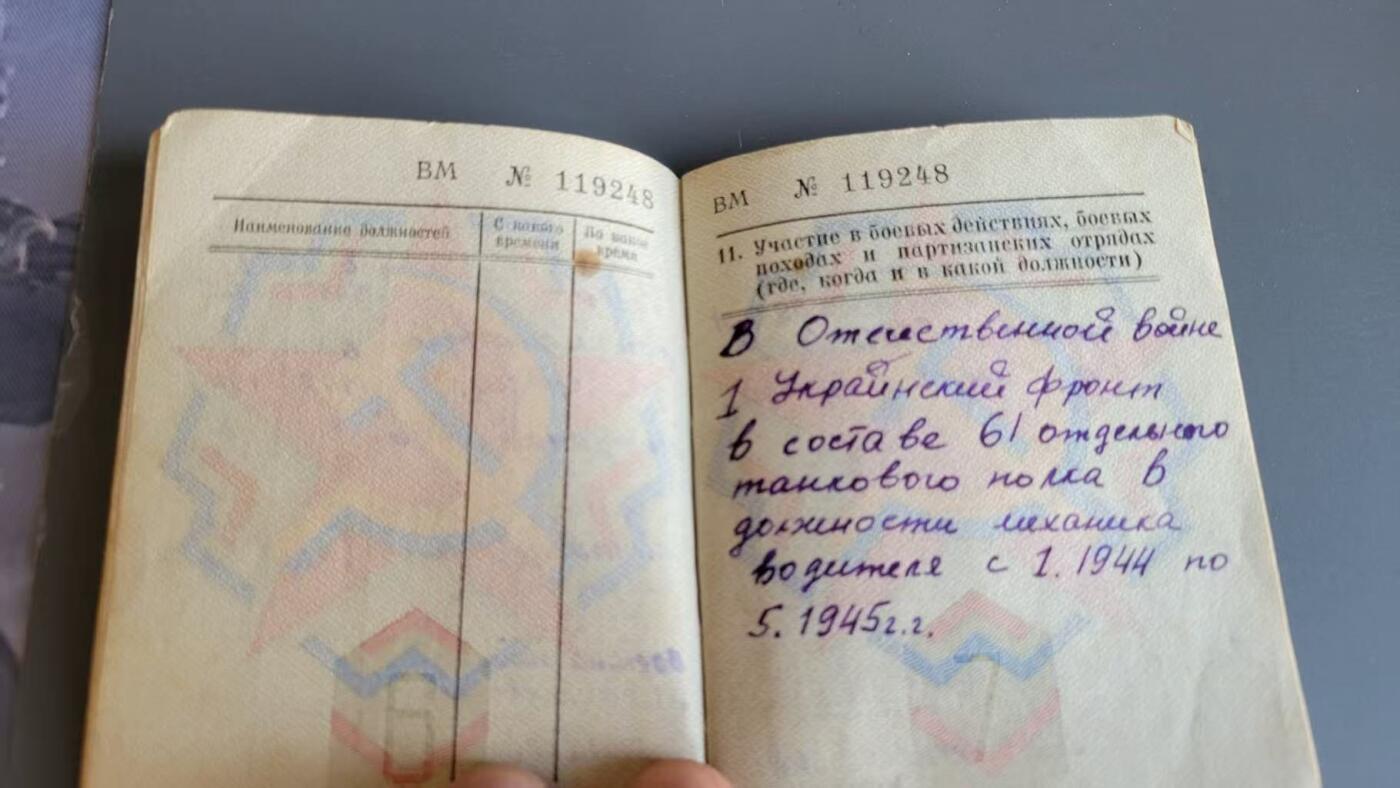 ВМ № 119248
Наименование должностей
С какого времени
По какое время
ВМ № 119248
11. Участие в боевых действиях, боевых
походах и партизанских отрядах
(где, когда и в какой должности)
В Отечественной войне
1 Украйнский фронт
в составе 61 отдельного
танкового полка в
должности механика
водителя с 1.1944 по
5.1945г.г.